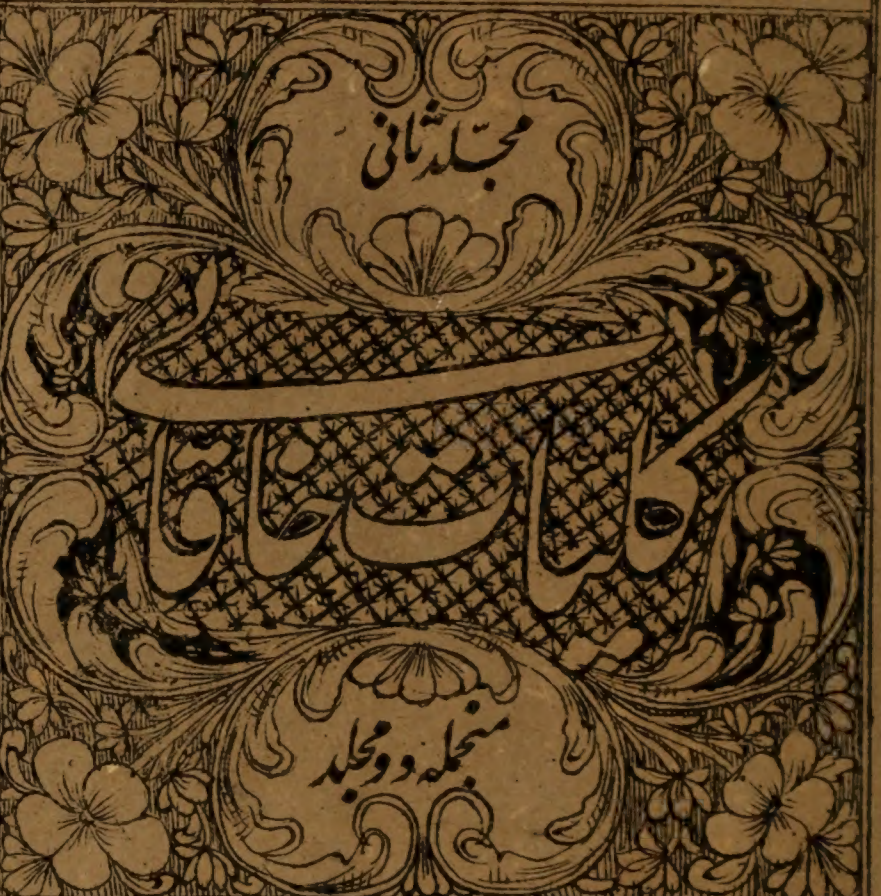 مجلّد ثانی
کلیات خاقانی
منجمله دو مجلد